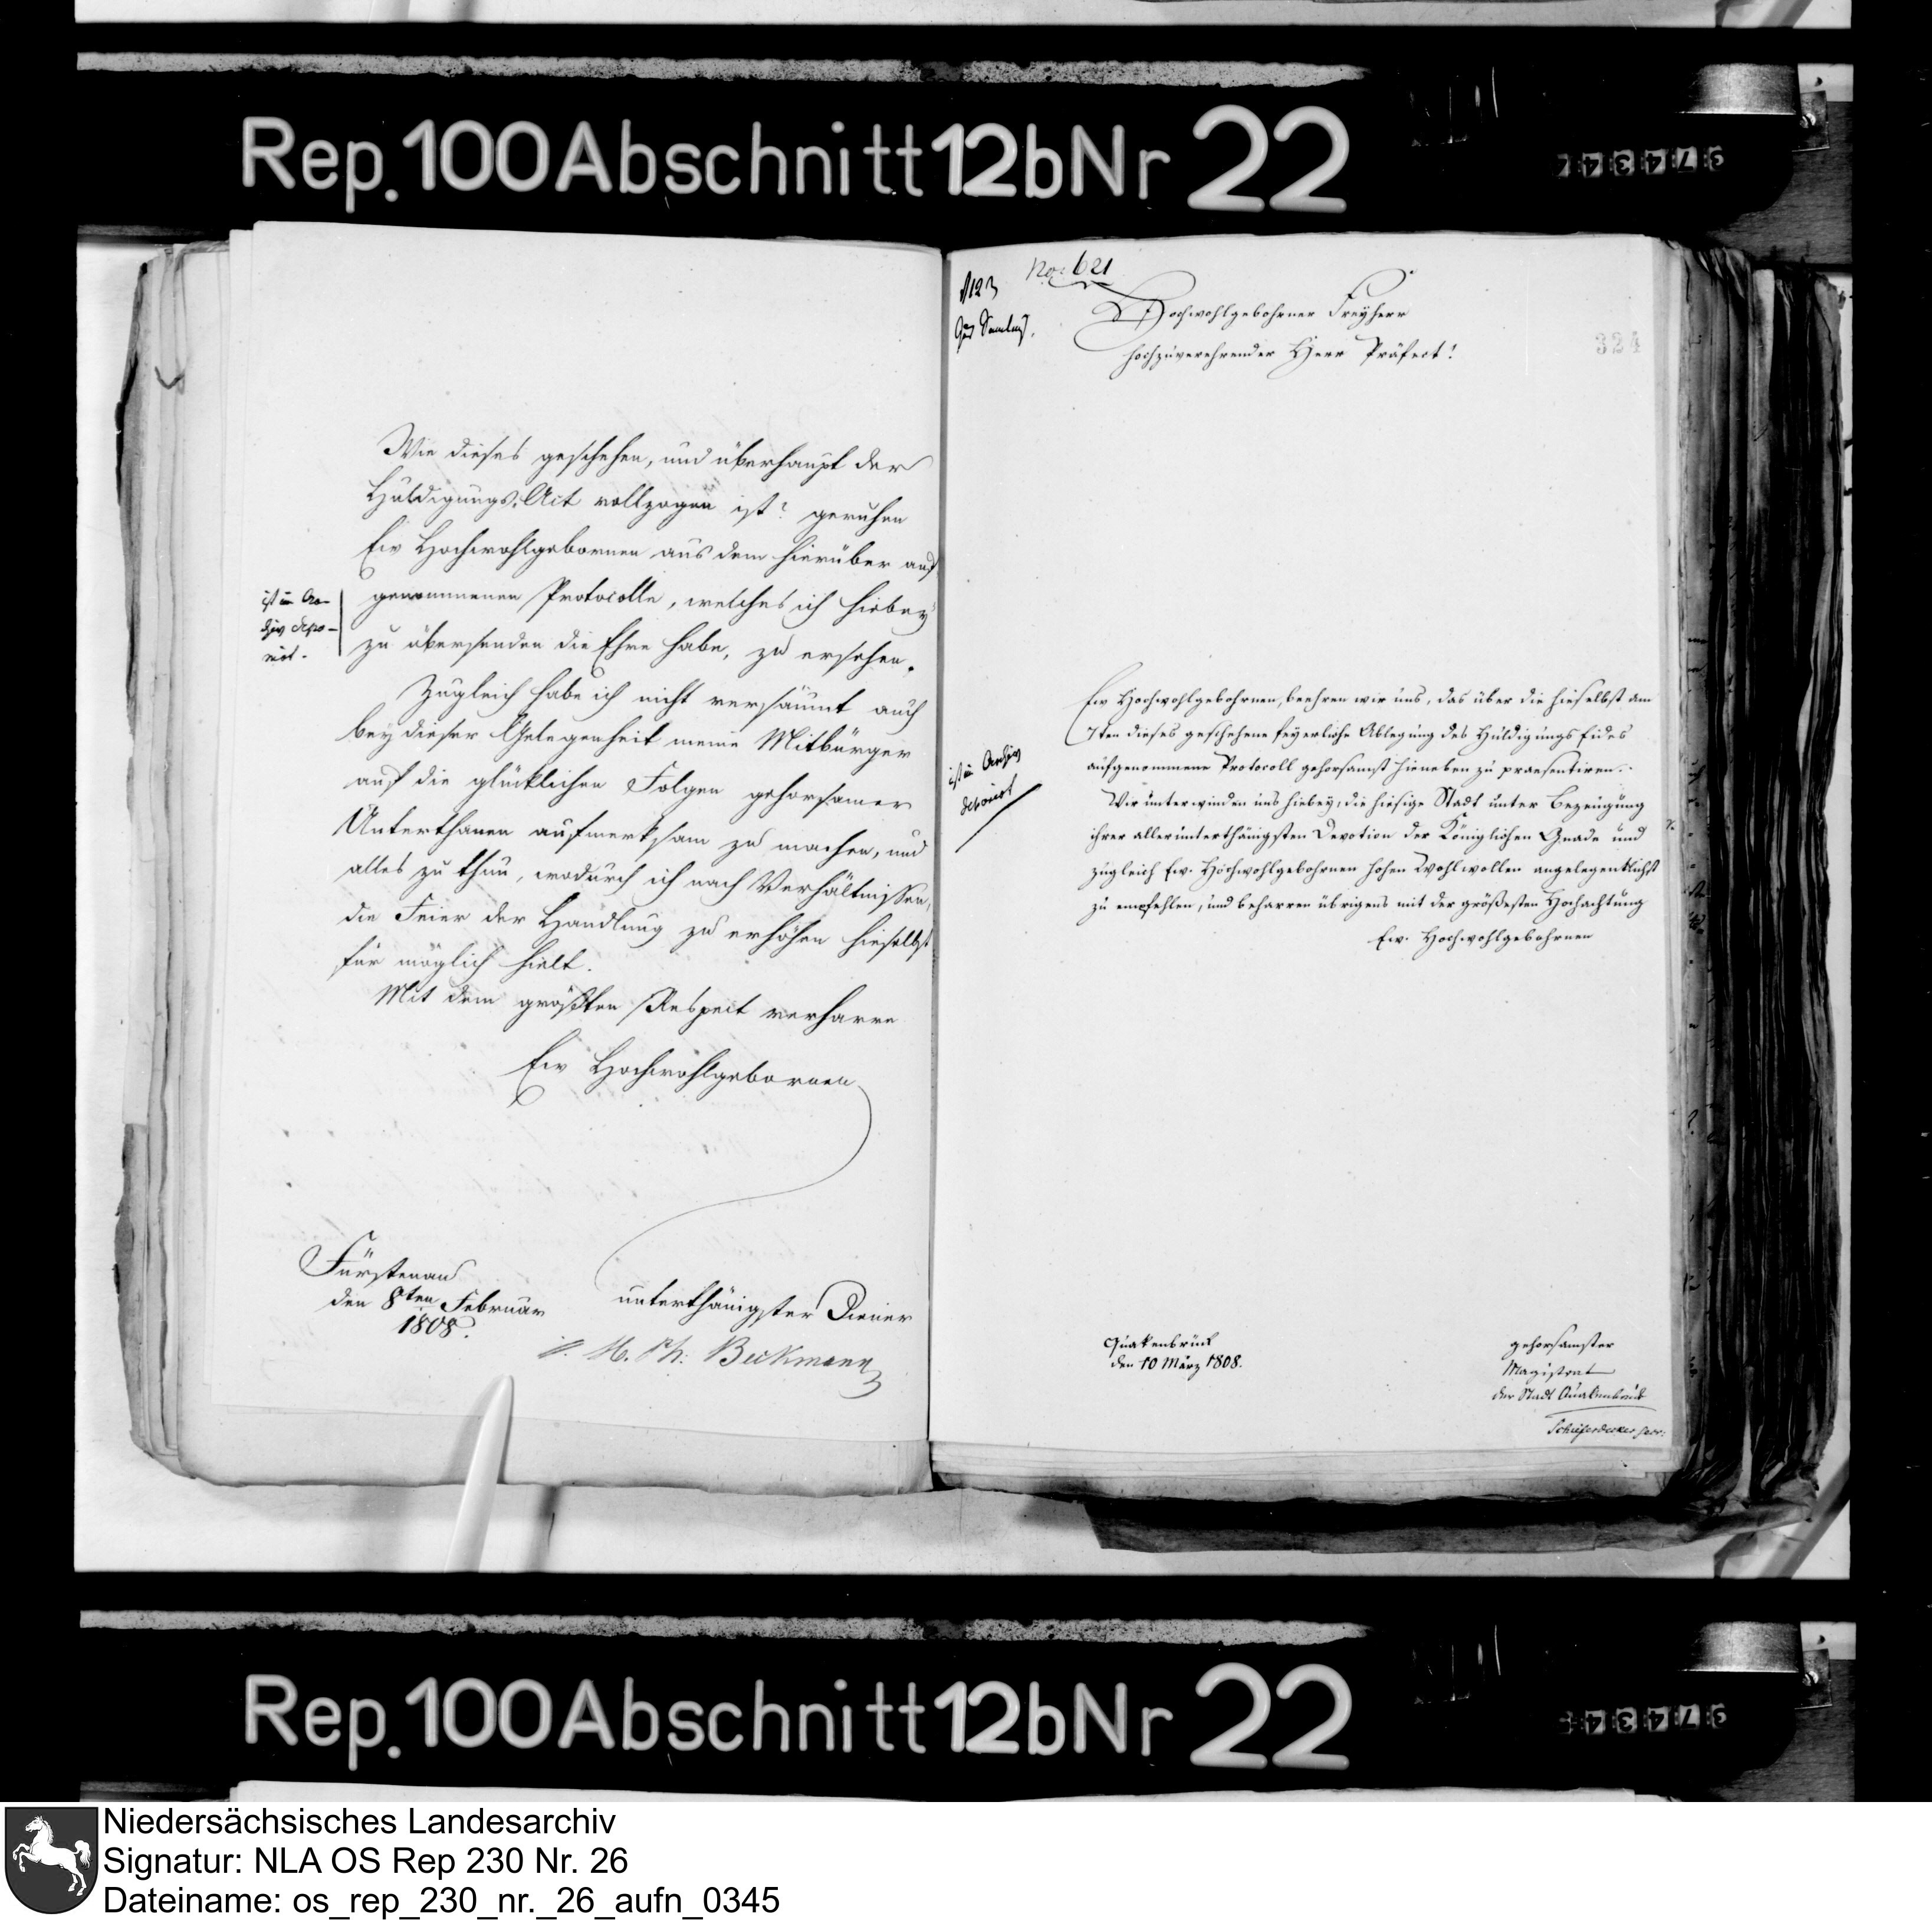 Rep. 100 Abschnitt 12b Nr 22
Wie dieses geschehen, und überhaupt der
Huldigungs-Act vollzogen ist? geruhen
Ew Hochwohlgebornen aus dem hierüber auf
genommenen Protocolle, welches ich hiebey
zu übersenden die Ehre habe, zu ersehen.
ist im Ar-
chiv depo-
nirt.
Zugleich habe ich nicht versäumt auch
bey dieser Gelegenheit meine Mitbürger
auf die glücklichen Folgen gehorsamer
Unterthanen aufmerksam zu machen, und
alles zu thun, wodurch ich nach Verhältnissen,
die Feier der Handlung zu erhöhen hieselbst
für möglich hielt.
Mit dem größten Respect verharre
Ew Hochwohlgebornen
unterthänigster Diener
M. Ph. Beckmann
Fürstenau
den 8ten Februar
1808.
No: 621
Hochwohlgebohrner Freyherr
hochzuverehrender Herr Präfect!
324
Ew Hochwohlgebohrnen, beehren wir uns, das über die hieselbst am
7ten dieses geschehene feyerliche Ablegung des Huldigungs Eides
aufgenommene Protocoll gehorsamst hieneben zu praesentiren.
ist im Archiv
deponirt
Wir unterwinden uns hiebey, die hiesige Stadt unter Bezeugung
ihrer allerunterthänigsten Devotion der Königlichen Gnade und
zugleich Ew. Hochwohlgebohrnen hohen Wohlwollen angelegentlichst
zu empfehlen, und beharren übrigens mit der größesten Hochachtung
Ew. Hochwohlgebohrnen
Quakenbrück
den 10 März 1808.
gehorsamster
Magistrat
der Stadt Quakenbrück
Schieferdecker secr:
Rep. 100 Abschnitt 12b Nr 22
Niedersächsisches Landesarchiv
Signatur: NLA OS Rep 230 Nr. 26
Dateiname: os_rep_230_nr._26_aufn_0345